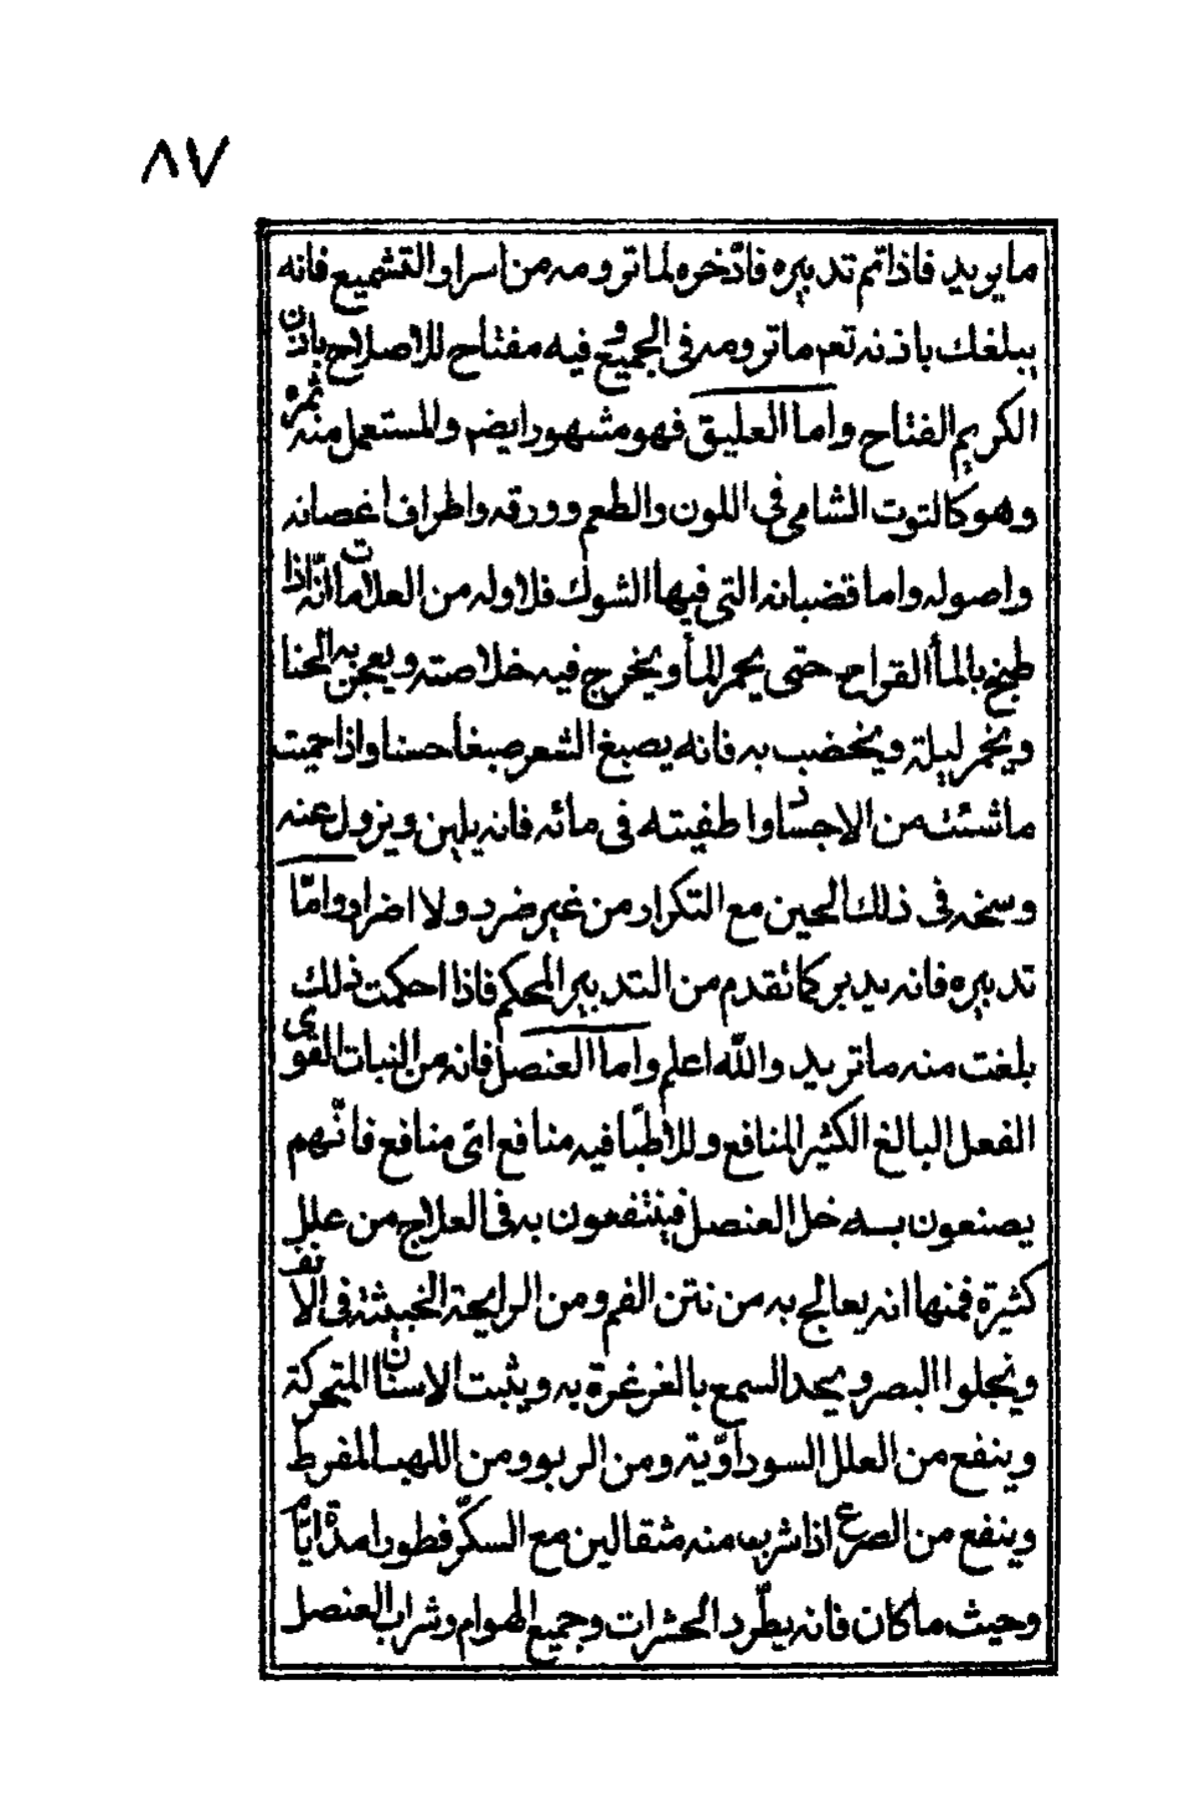 ٨٧
ما يريد فاذا تم تدبيره فادّخره لما ترومه من اسرار التشميع فانه
يبلغك باذنه تعم ما ترومه فى الجميع وفيه مفتاح للاصلاح باذن
الكريم الفتاح واما العليق فهو مشهور ايضم والمستعمل منه ثمره
وهو كالتوت الشامى فى اللون والطعم وورقه واطراف اغصانه
واصوله واما قضبانه التى فيها الشوك فلا وله من العلامات انّه اذا
طبخ بالمأ القراح حتى يحمر المأ ويخرج فيه خلاصته ويعجن به الحنا
ويخمر ليلة ويخضب به فانه يصبغ الشعر صبغأ حسنا واذا حميت
ما شئت من الاجساد واطفيته فى مائه فانه يلين ويزول عنه
وسخه فى ذلك الحين مع التكرار من غير ضرر ولا اضرار وامّا
تدبيره فانه يدبر كما تقدم من التدبير المحكم فاذا احكمت ذلك
بلغت منه ما تريد والله اعلم واما العنصل فانه من النبات القوى
الفعل البالغ الكثير المنافع وللاطبّا فيه منافع اىّ منافع فانّهم
يصنعون به خل العنصل فينتفعون به فى العلاج من علل
كثيرة فمنها انه يعالج به من نتن الفم ومن الرايحة الخبيثة فى الانف
ويجلوا البصر ويحد السمع بالغرغرة به ويثبت الاسنان المتحركة
وينفع من العلل السوداوّية ومن الربو ومن اللهيب المفرط
وينفع من الصرع اذا شرب منه مثقالين مع السكّر فطورا مدة ايّام
وحيث ما كان فانه يطّرد الحشرات وجميع الهوام وشراب العنصل